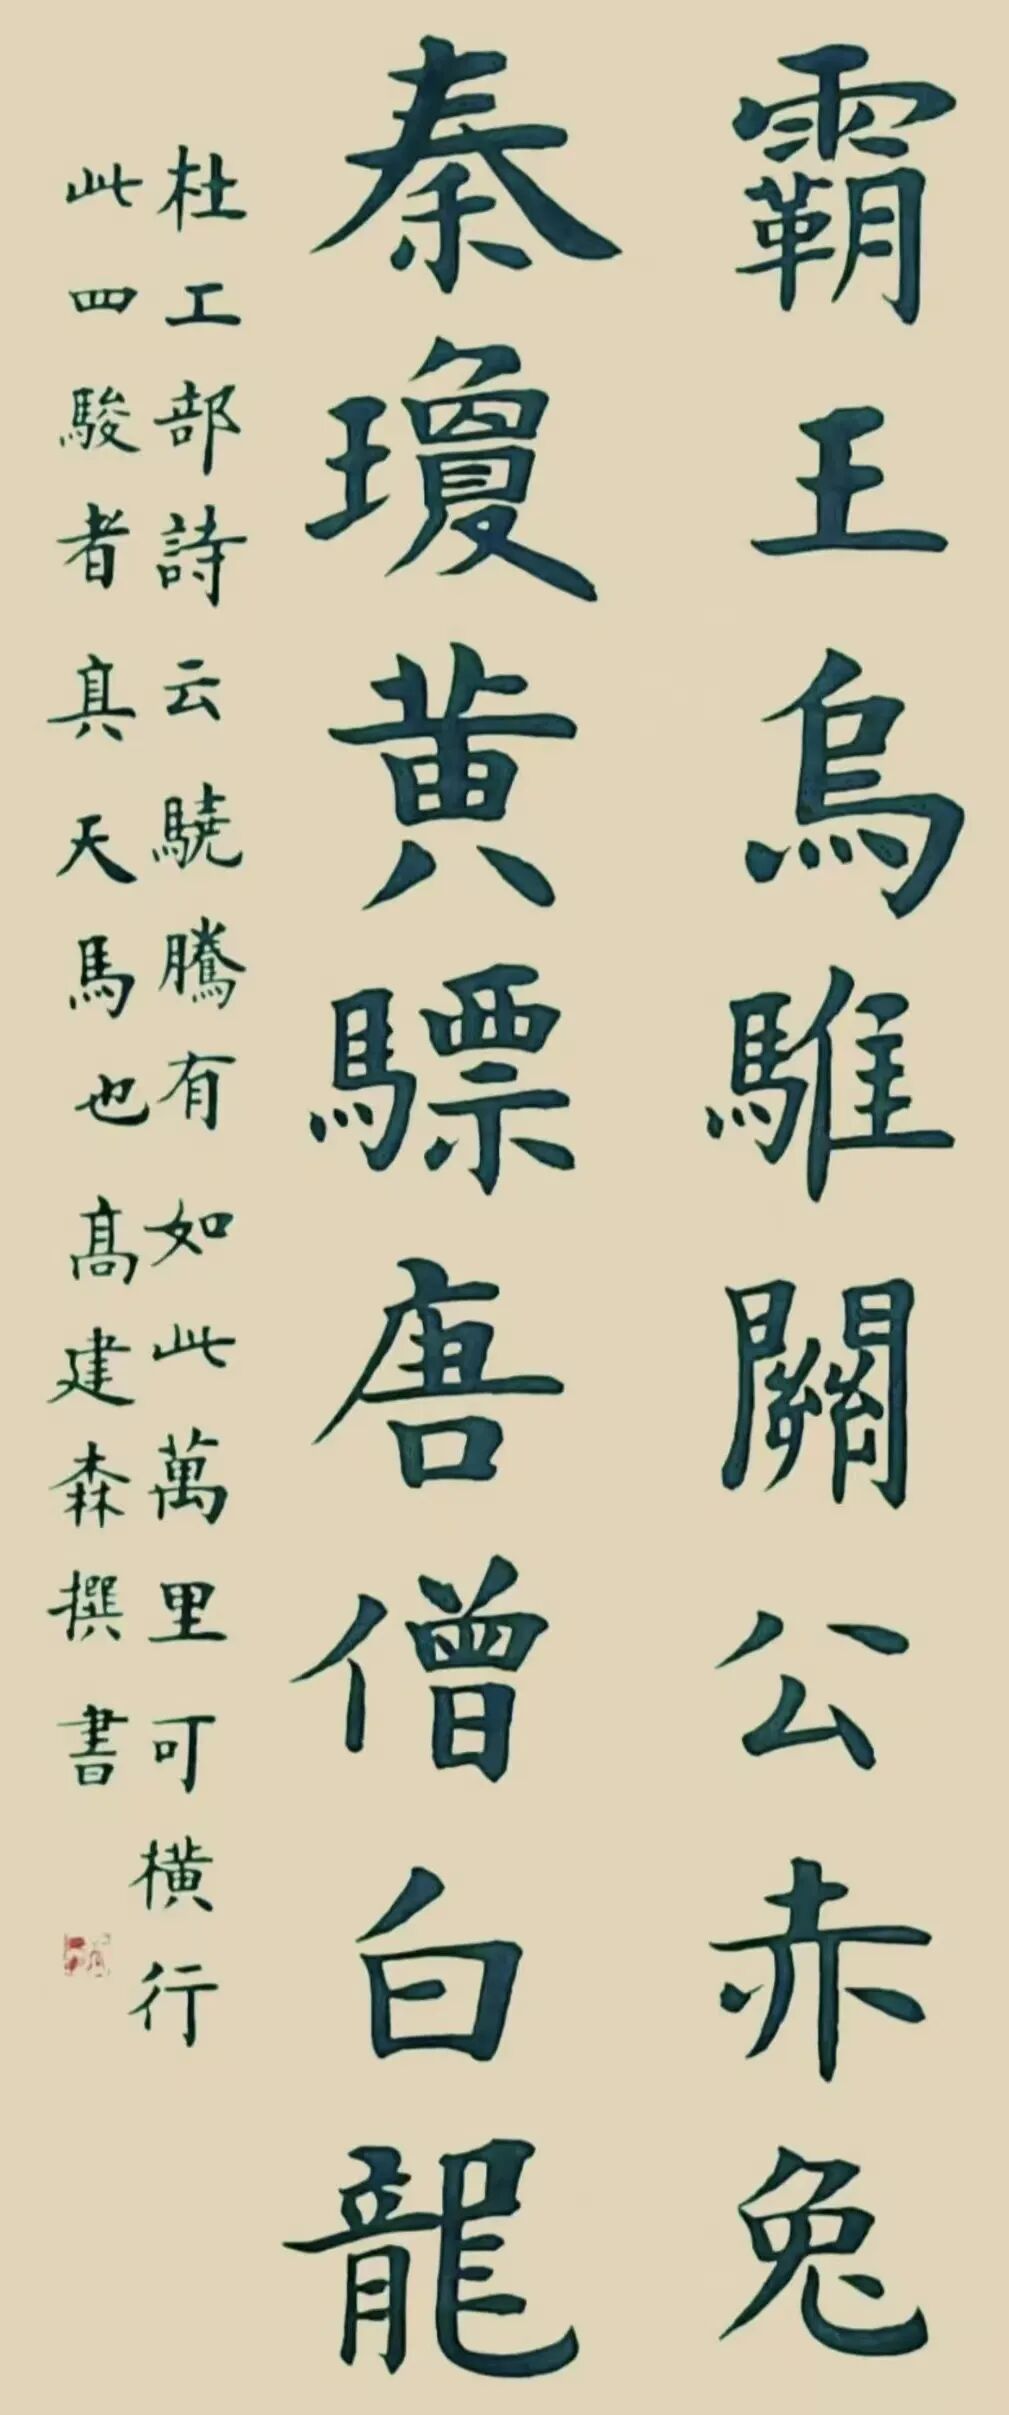 霸王烏騅關公赤兔
秦瓊黄驃唐僧白龍
杜工部詩云驍騰有如此萬里可橫行
此四駿者真天馬也高建森撰書